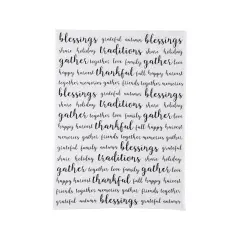 blessings grateful autumn blessings
share holiday traditions share holiday
gather together love family gather
happy harvest thankful fall happy harvest
memories gather friends together memories
blessings grateful autumn blessings
share holiday traditions share holiday
gather together love family gather love
happy harvest thankful fall happy harvest
memories gather friends together memories
grateful autumn blessings grateful autumn
share holiday traditions share holiday
gather together love family gather love
happy harvest thankful fall happy harvest
friends together memories gather friends together
grateful autumn blessings grateful autumn